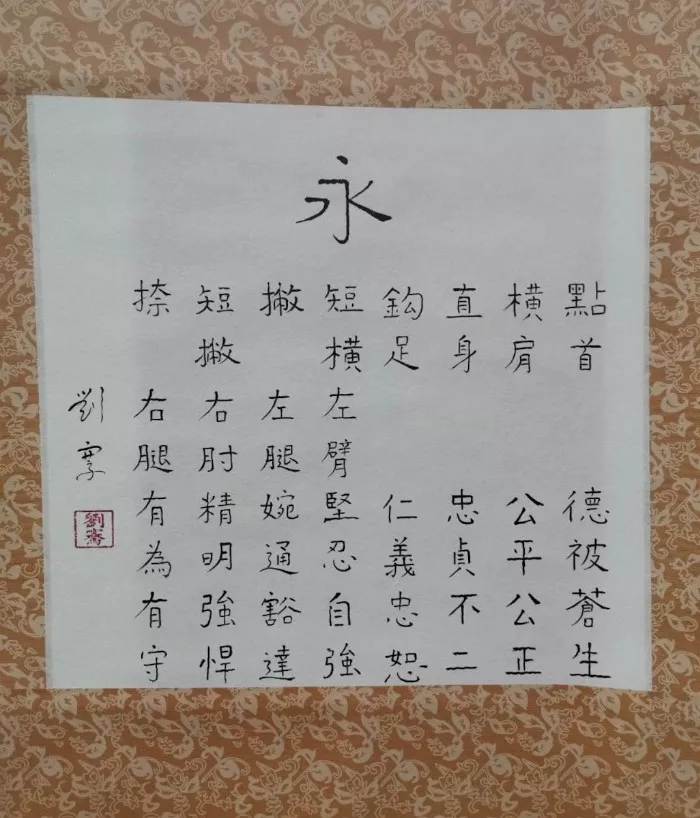 永
點首 德被蒼生
橫肩 公平公正
直身 忠貞不二
鈎足 仁義忠恕
短橫 左臂堅忍自強
撇 左腿婉通豁達
短撇 右肘精明強悍
捺 右腿有為有守
劉
劉